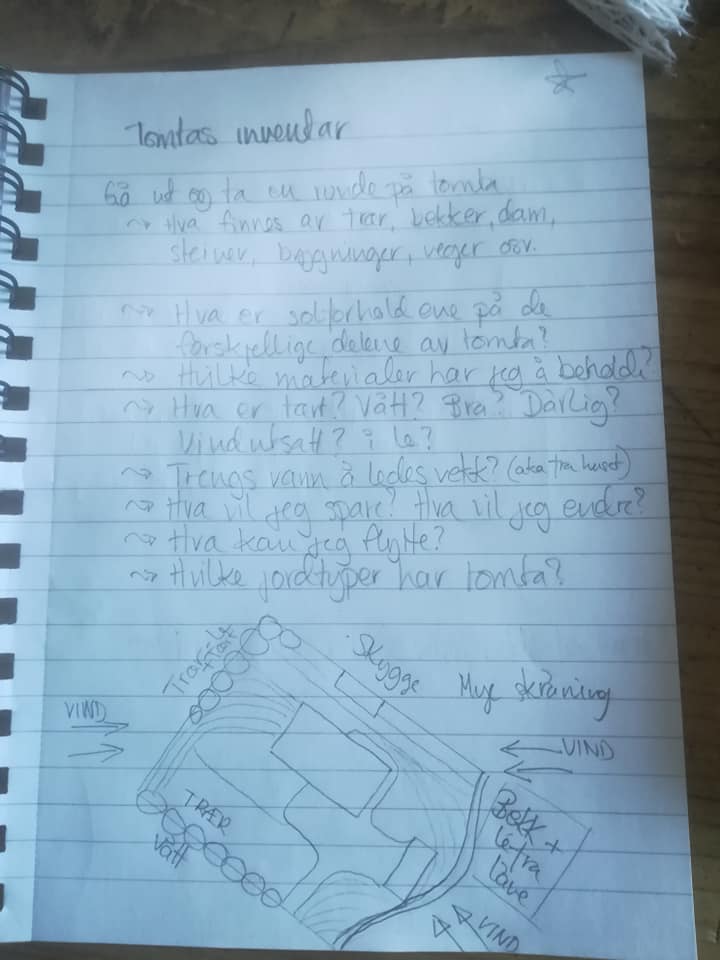 Tomtas inventar
Gå ut og ta en runde på tomta
~> Hva finnes av trær, bekker, dam,
steiner, byggninger, veger osv.
~> Hva er solforholdene på de
forskjellige delene av tomta?
~> Hvilke materialer har jeg å beholde?
~> Hva er tørt? Vått? Bra? Dårlig?
Vindutsatt? i le?
~> Trengs vann å ledes vekk? (aka fra huset)
~> Hva vil jeg spare? Hva vil jeg endre?
~> Hva kan jeg flytte?
~> Hvilke jordtyper har tomta?
Skygge
Mye skråning
VIND
VIND
TRÆR
Vått
Bekk +
le fra
låve
VIND